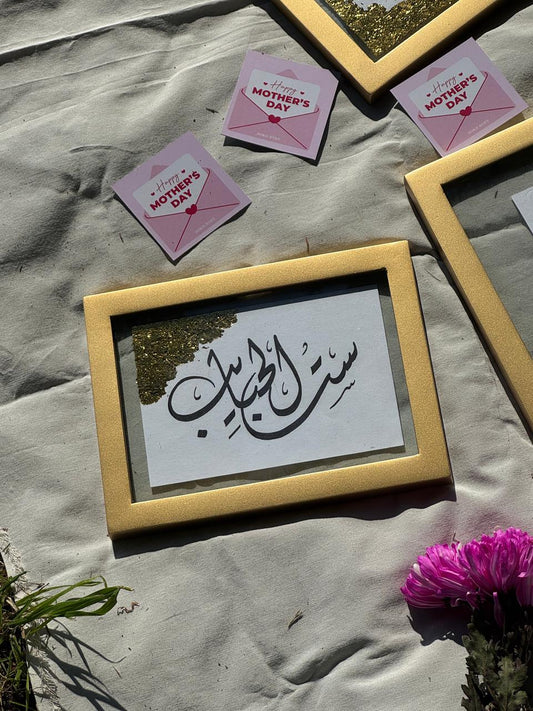 Happy
MOTHER'S
DAY
Happy
MOTHER'S
DAY
Happy
MOTHER'S
DAY
ست الحبايب